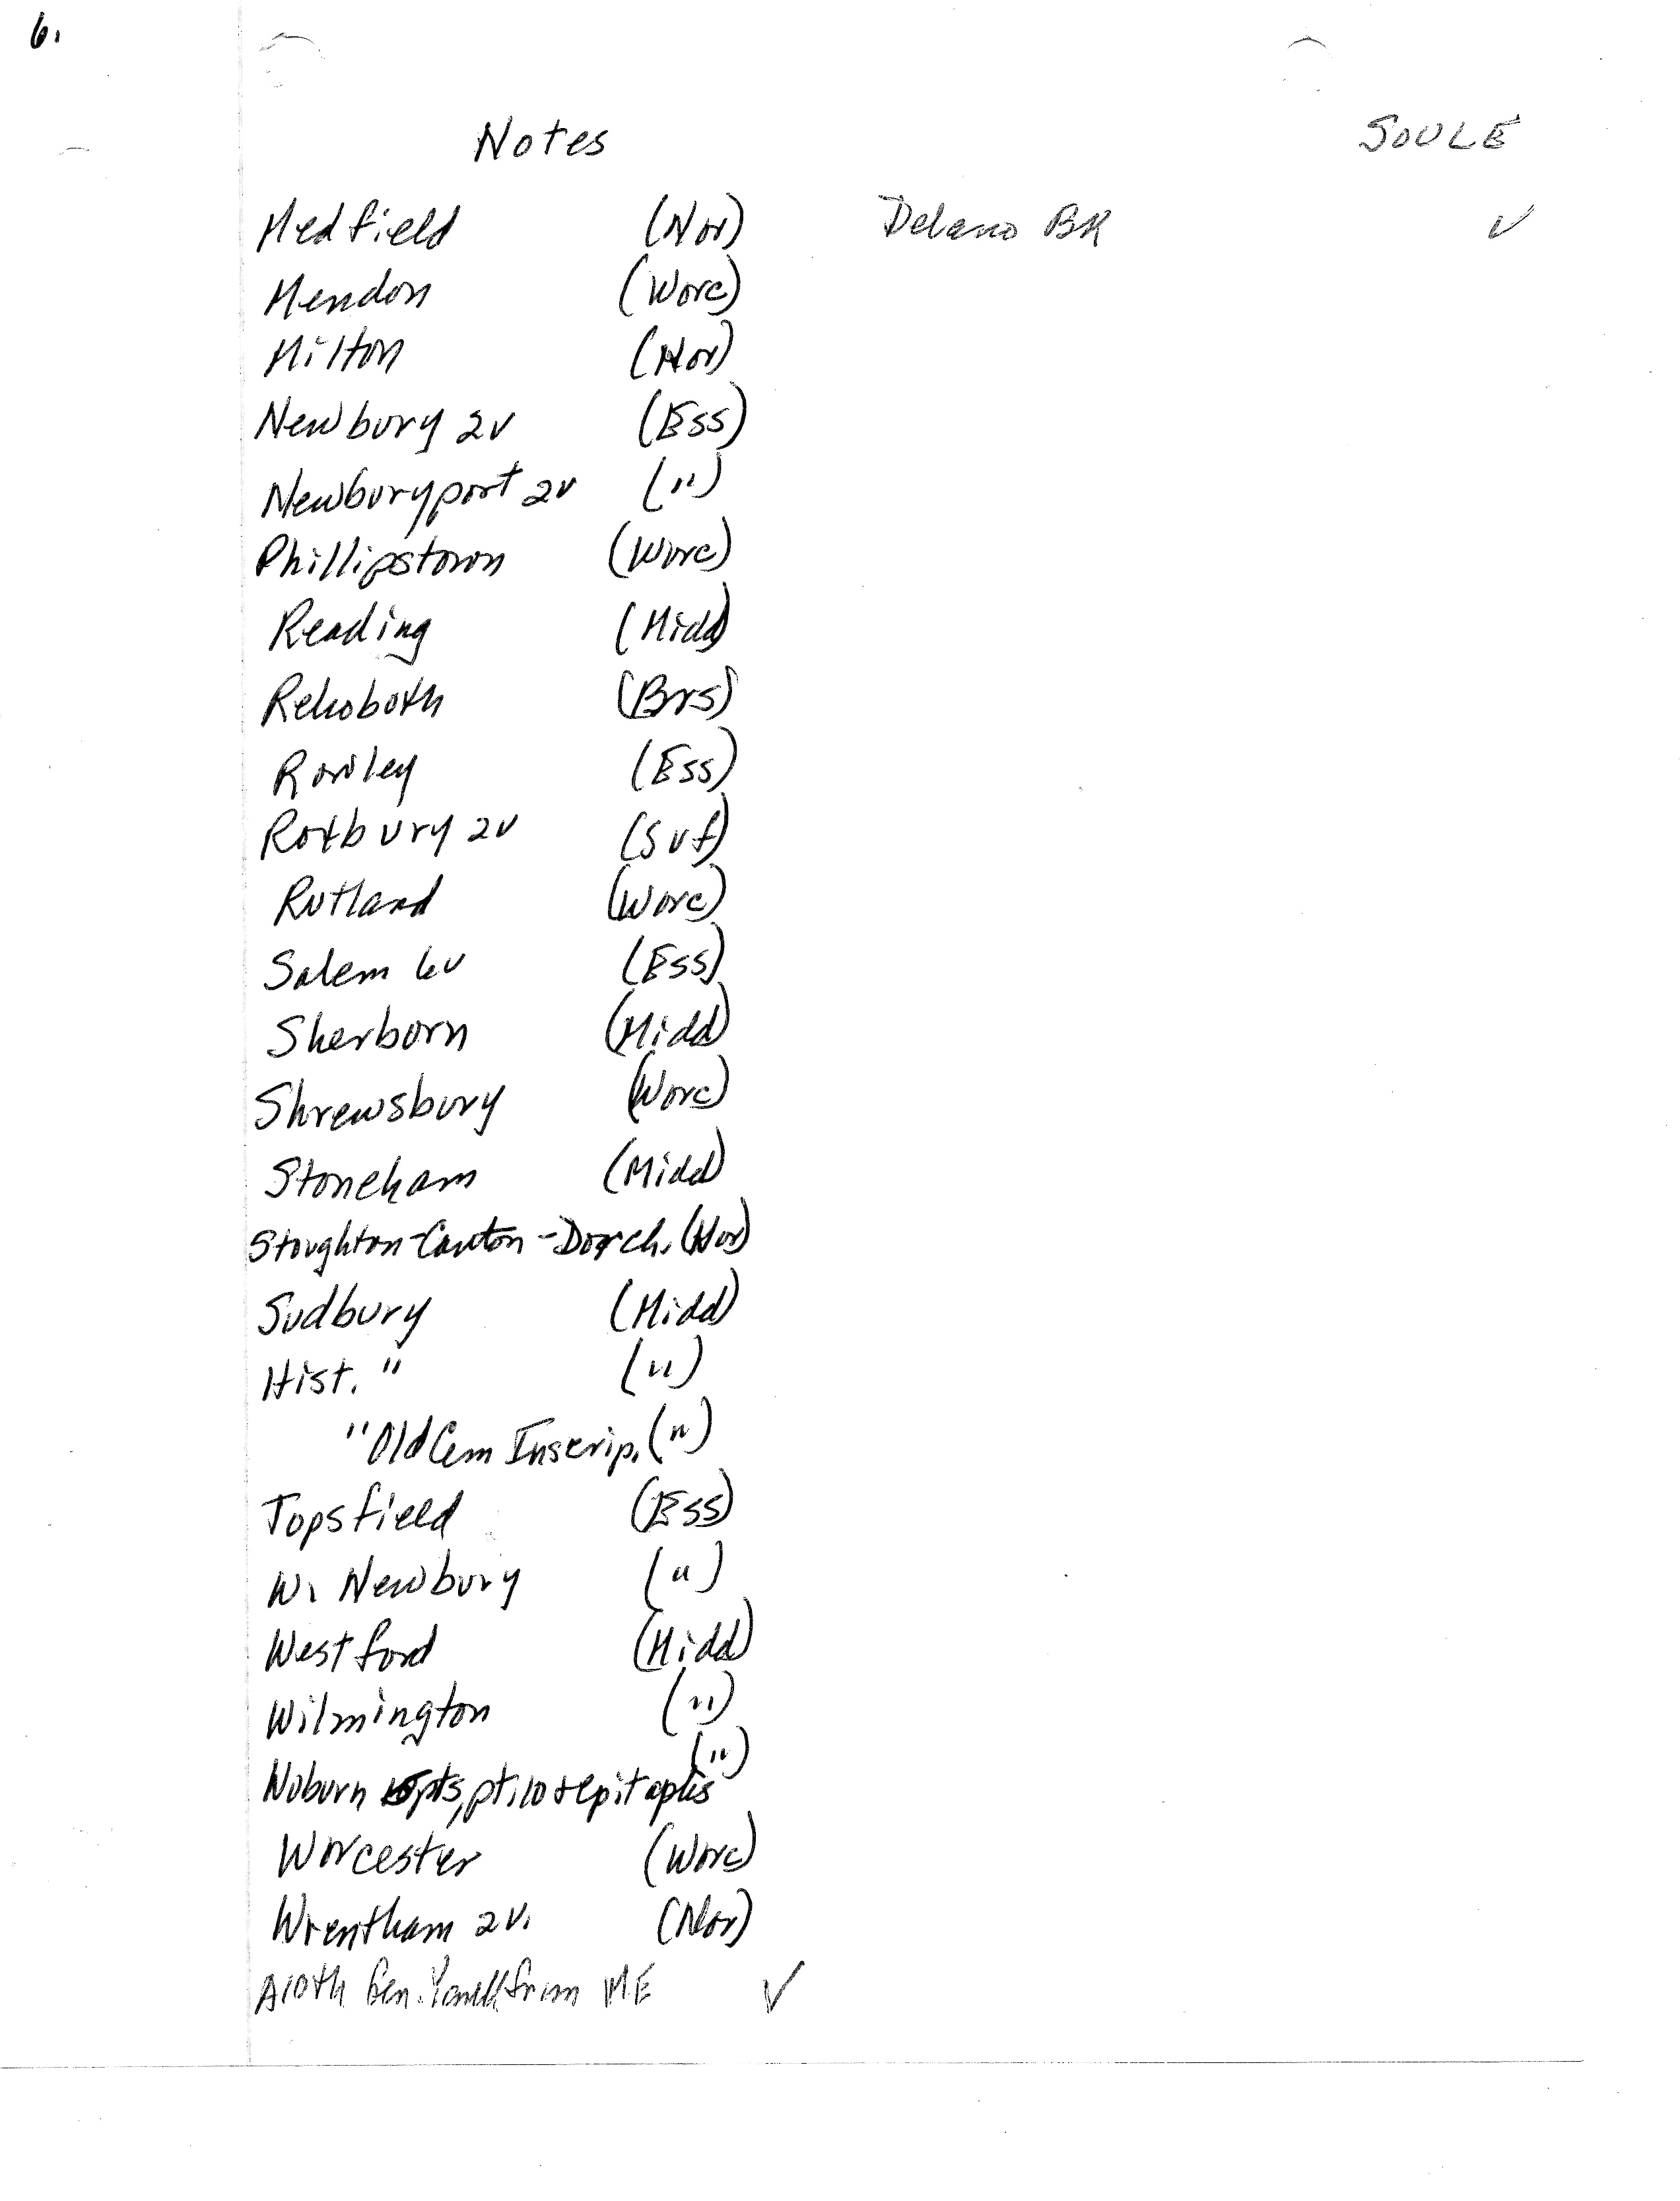 6.
Notes SOULE
Medfield (Nor) Delano BK ✓
Mendon (Worc)
Milton (Nor)
Newbury 2v (Ess)
Newburyport 2v (")
Phillipstown (Worc)
Reading (Midd)
Rehoboth (Brs)
Rowley (Ess)
Roxbury 2v (Suf)
Rutland (Worc)
Salem 6v (Ess)
Sherborn (Midd)
Shrewsbury (Worc)
Stoneham (Midd)
Stoughton-Canton-Dorch. (Nor)
Sudbury (Midd)
Hist. " (")
"Old Cem Inscrip. (")
Topsfield (Ess)
W. Newbury (")
Westford (Midd)
Wilmington (")
(")
Woburn pts, pt.10 + epitaphs
Worcester (Worc)
Wrentham 2v. (Nor)
10th Gen. from ME ✓